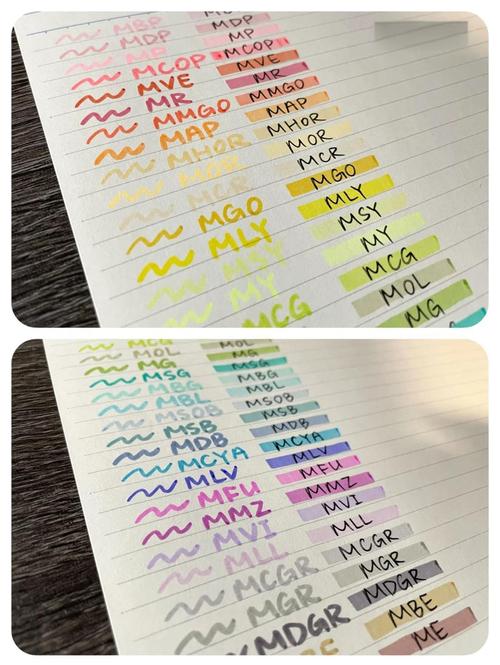 MBP
MDP MDP
MP MP
MCOP MCOP
MVE MVE
MR MR
MMGO MMGO
MAP MAP
MHOR MHOR
MOR MOR
MCR MCR
MGO MGO
MLY MLY
MSY MSY
MY MY
MCG MCG
MOL
MG
MCG
MOL MOL
MG MG
MSG MSG
MBG MBG
MBL MBL
MSOB MSOB
MSB MSB
MDB MDB
MCYA MCYA
MLV MLV
MFU MFU
MMZ MMZ
MVI MVI
MLL MLL
MCGR MCGR
MGR MGR
MDGR MDGR
MBE
ME